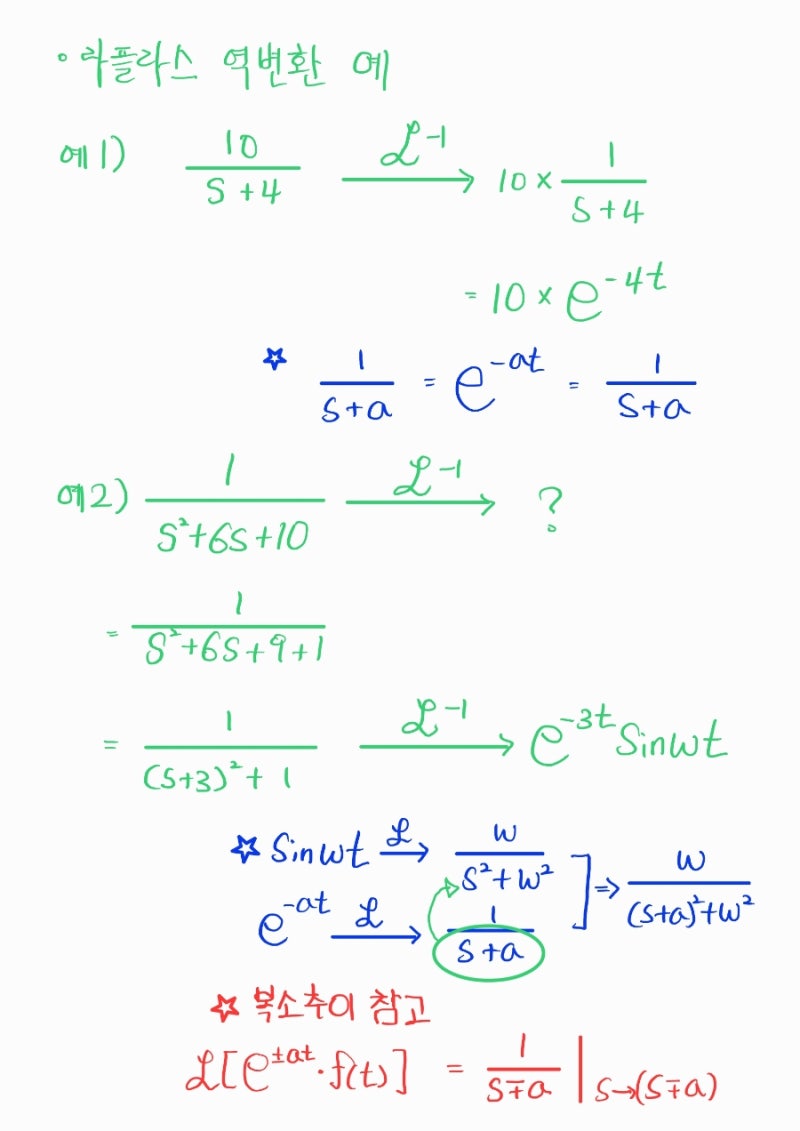 · 라플라스 역변환 예
예1) 10/(S+4) ℒ⁻¹→ 10 × 1/(S+4)
= 10 × e^(-4t)
☆ 1/(S+a) = e^(-at) = 1/(S+a)
예2) 1/(S²+6S+10) ℒ⁻¹→ ?
= 1/(S²+6S+9+1)
= 1/((S+3)²+1) ℒ⁻¹→ e^(-3t) Sinwt
☆ Sinwt ℒ→ w/(S²+w²)
e^(-at) ℒ→ 1/(S+a) ] ⇒ w/((S+a)²+w²)
☆ 복소추이 참고
ℒ[e^(±at)·f(t)] = 1/(S∓a) | S→(S∓a)